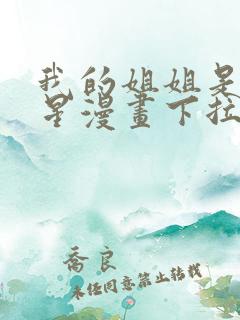 我的姐姐是
星漫畫下拉
喬良
未经同意禁止转载